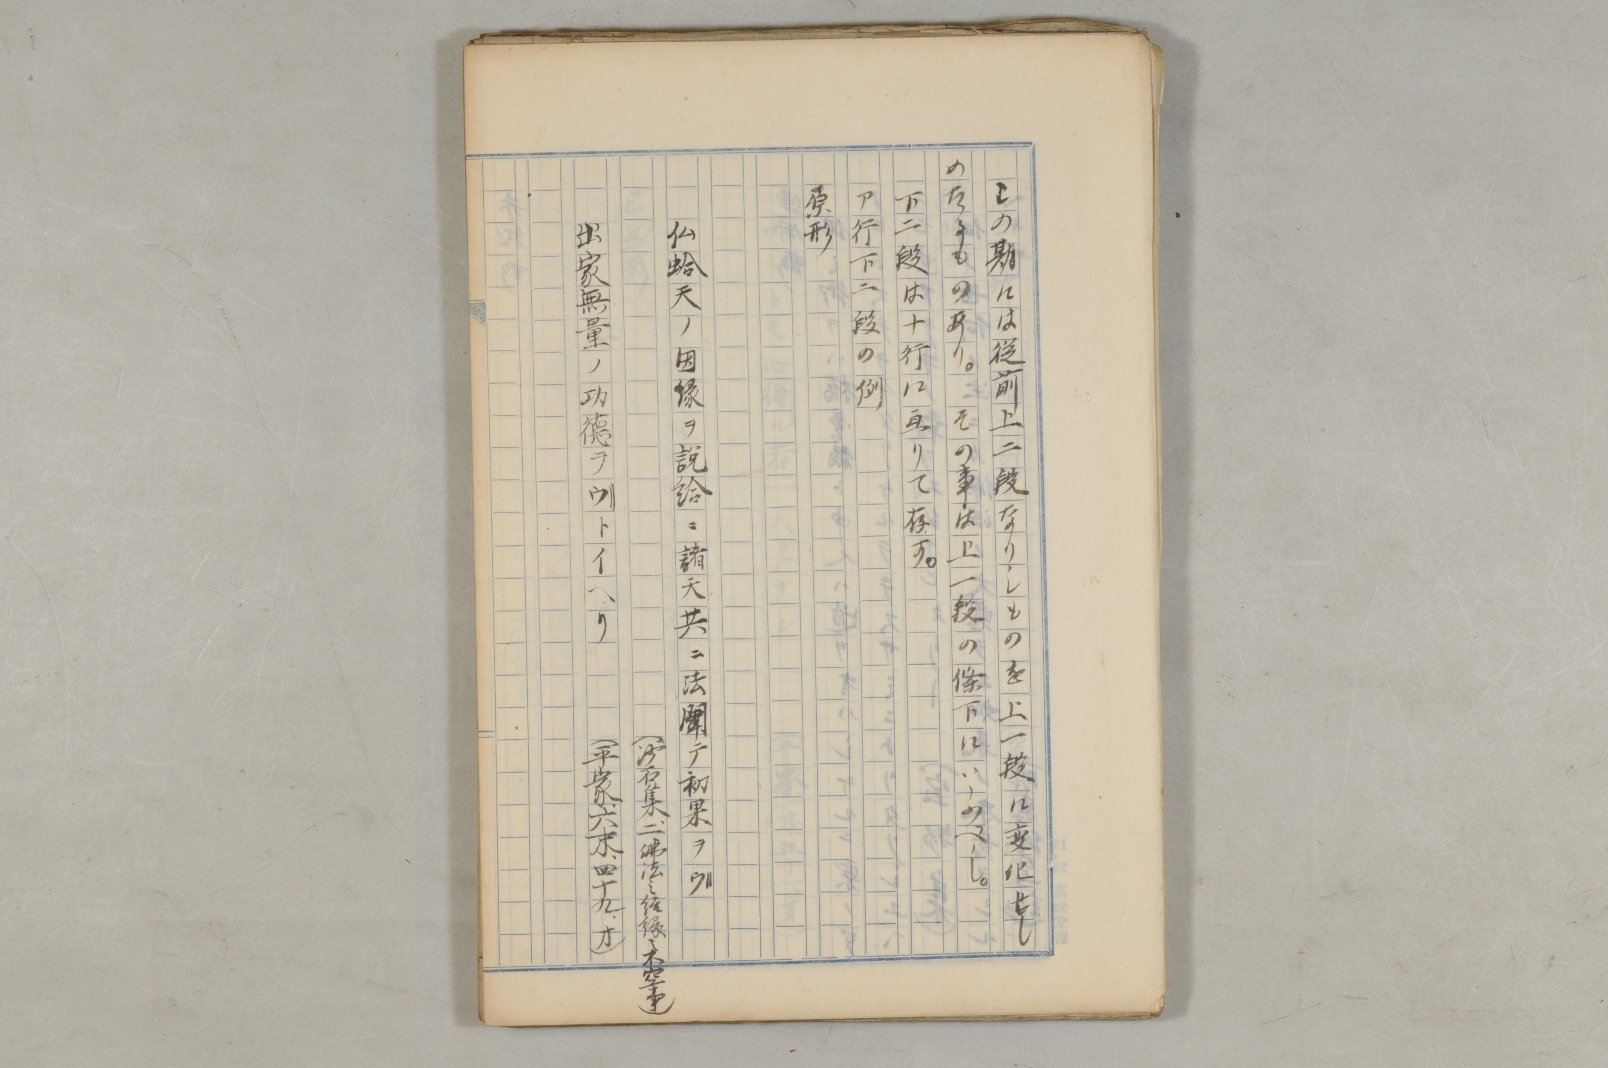 この期には従前上二段なりしものを上一段に変化せし
めたるものあり。その事は上一段の條下にいふべし。
下二段は十行に亙りて存す。
ア行下二段の例
原形
仏蛤天ノ因縁ヲ説給ニ諸天共ニ法聞テ初果ヲウ
(沙石集、二、佛法之結縁之不空事)
出家無量ノ功德ヲウトイヘリ
(平家、六末、四十九、オ)